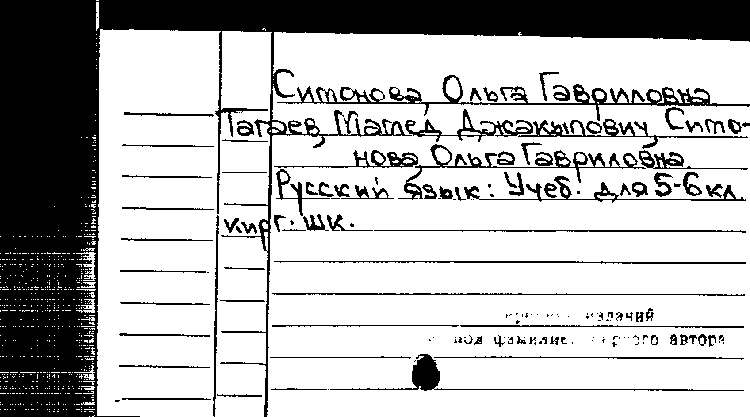 Ситонова, Ольга Гавриловна
Тагаев, Маглед Джакыпович, Сито-
нова, Ольга Гавриловна.
Русский язык: Учеб. для 5-6 кл.
кирг. шк.
изданий
под фамилией первого автора